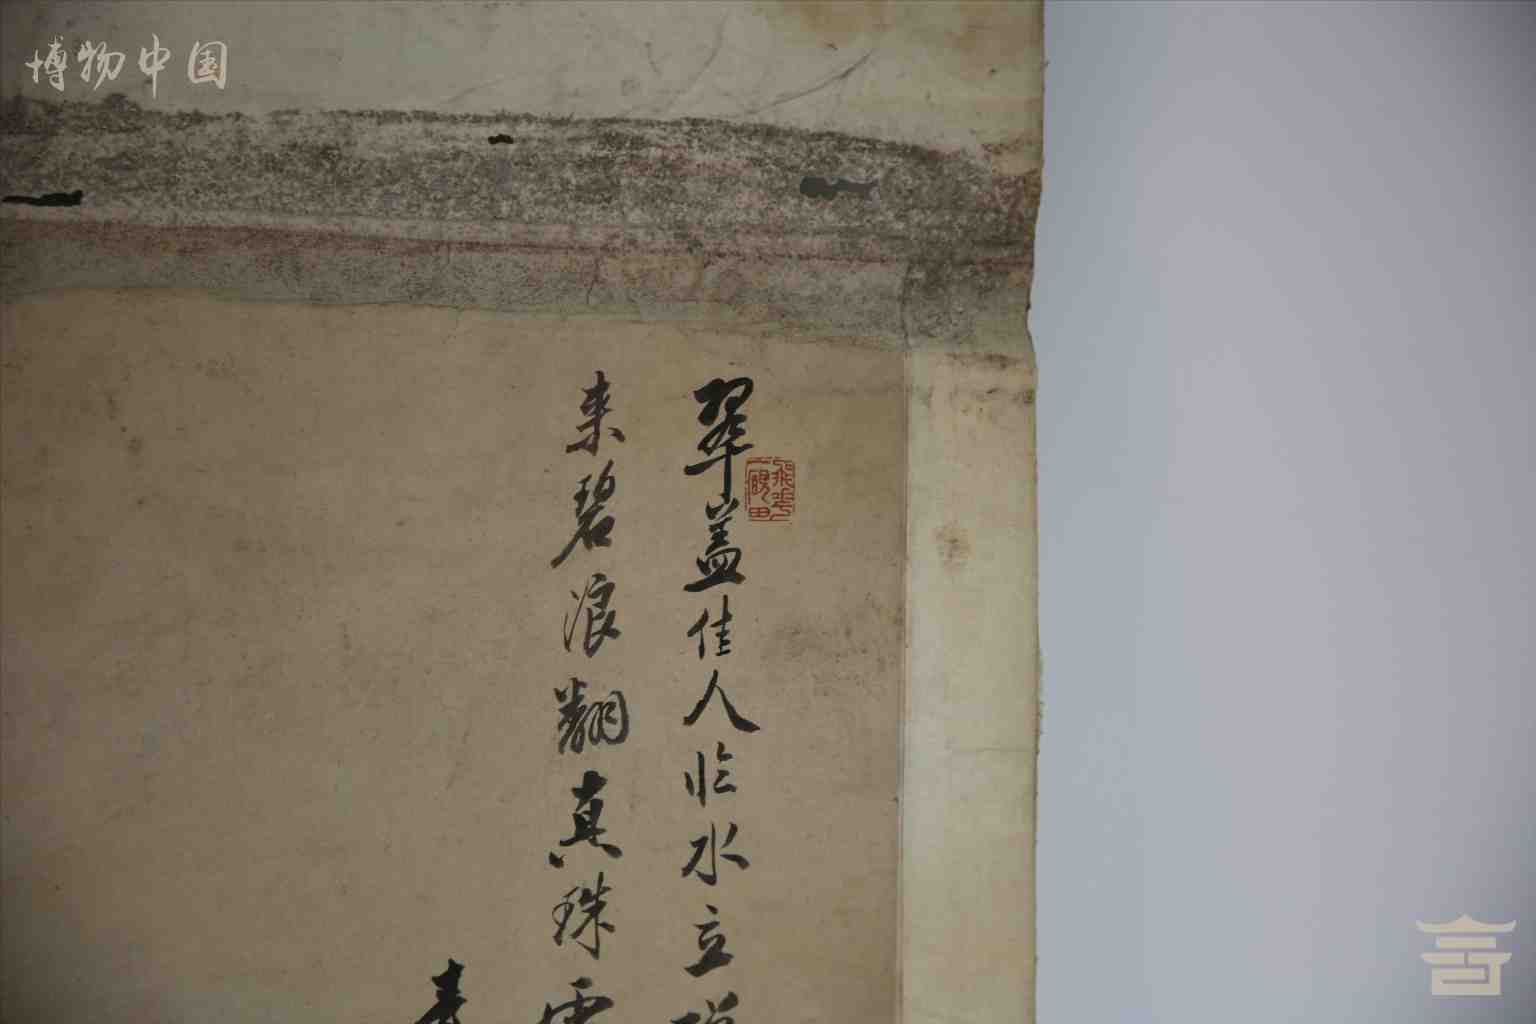 博物中国
翠盖佳人临水立
来碧浪翻真珠